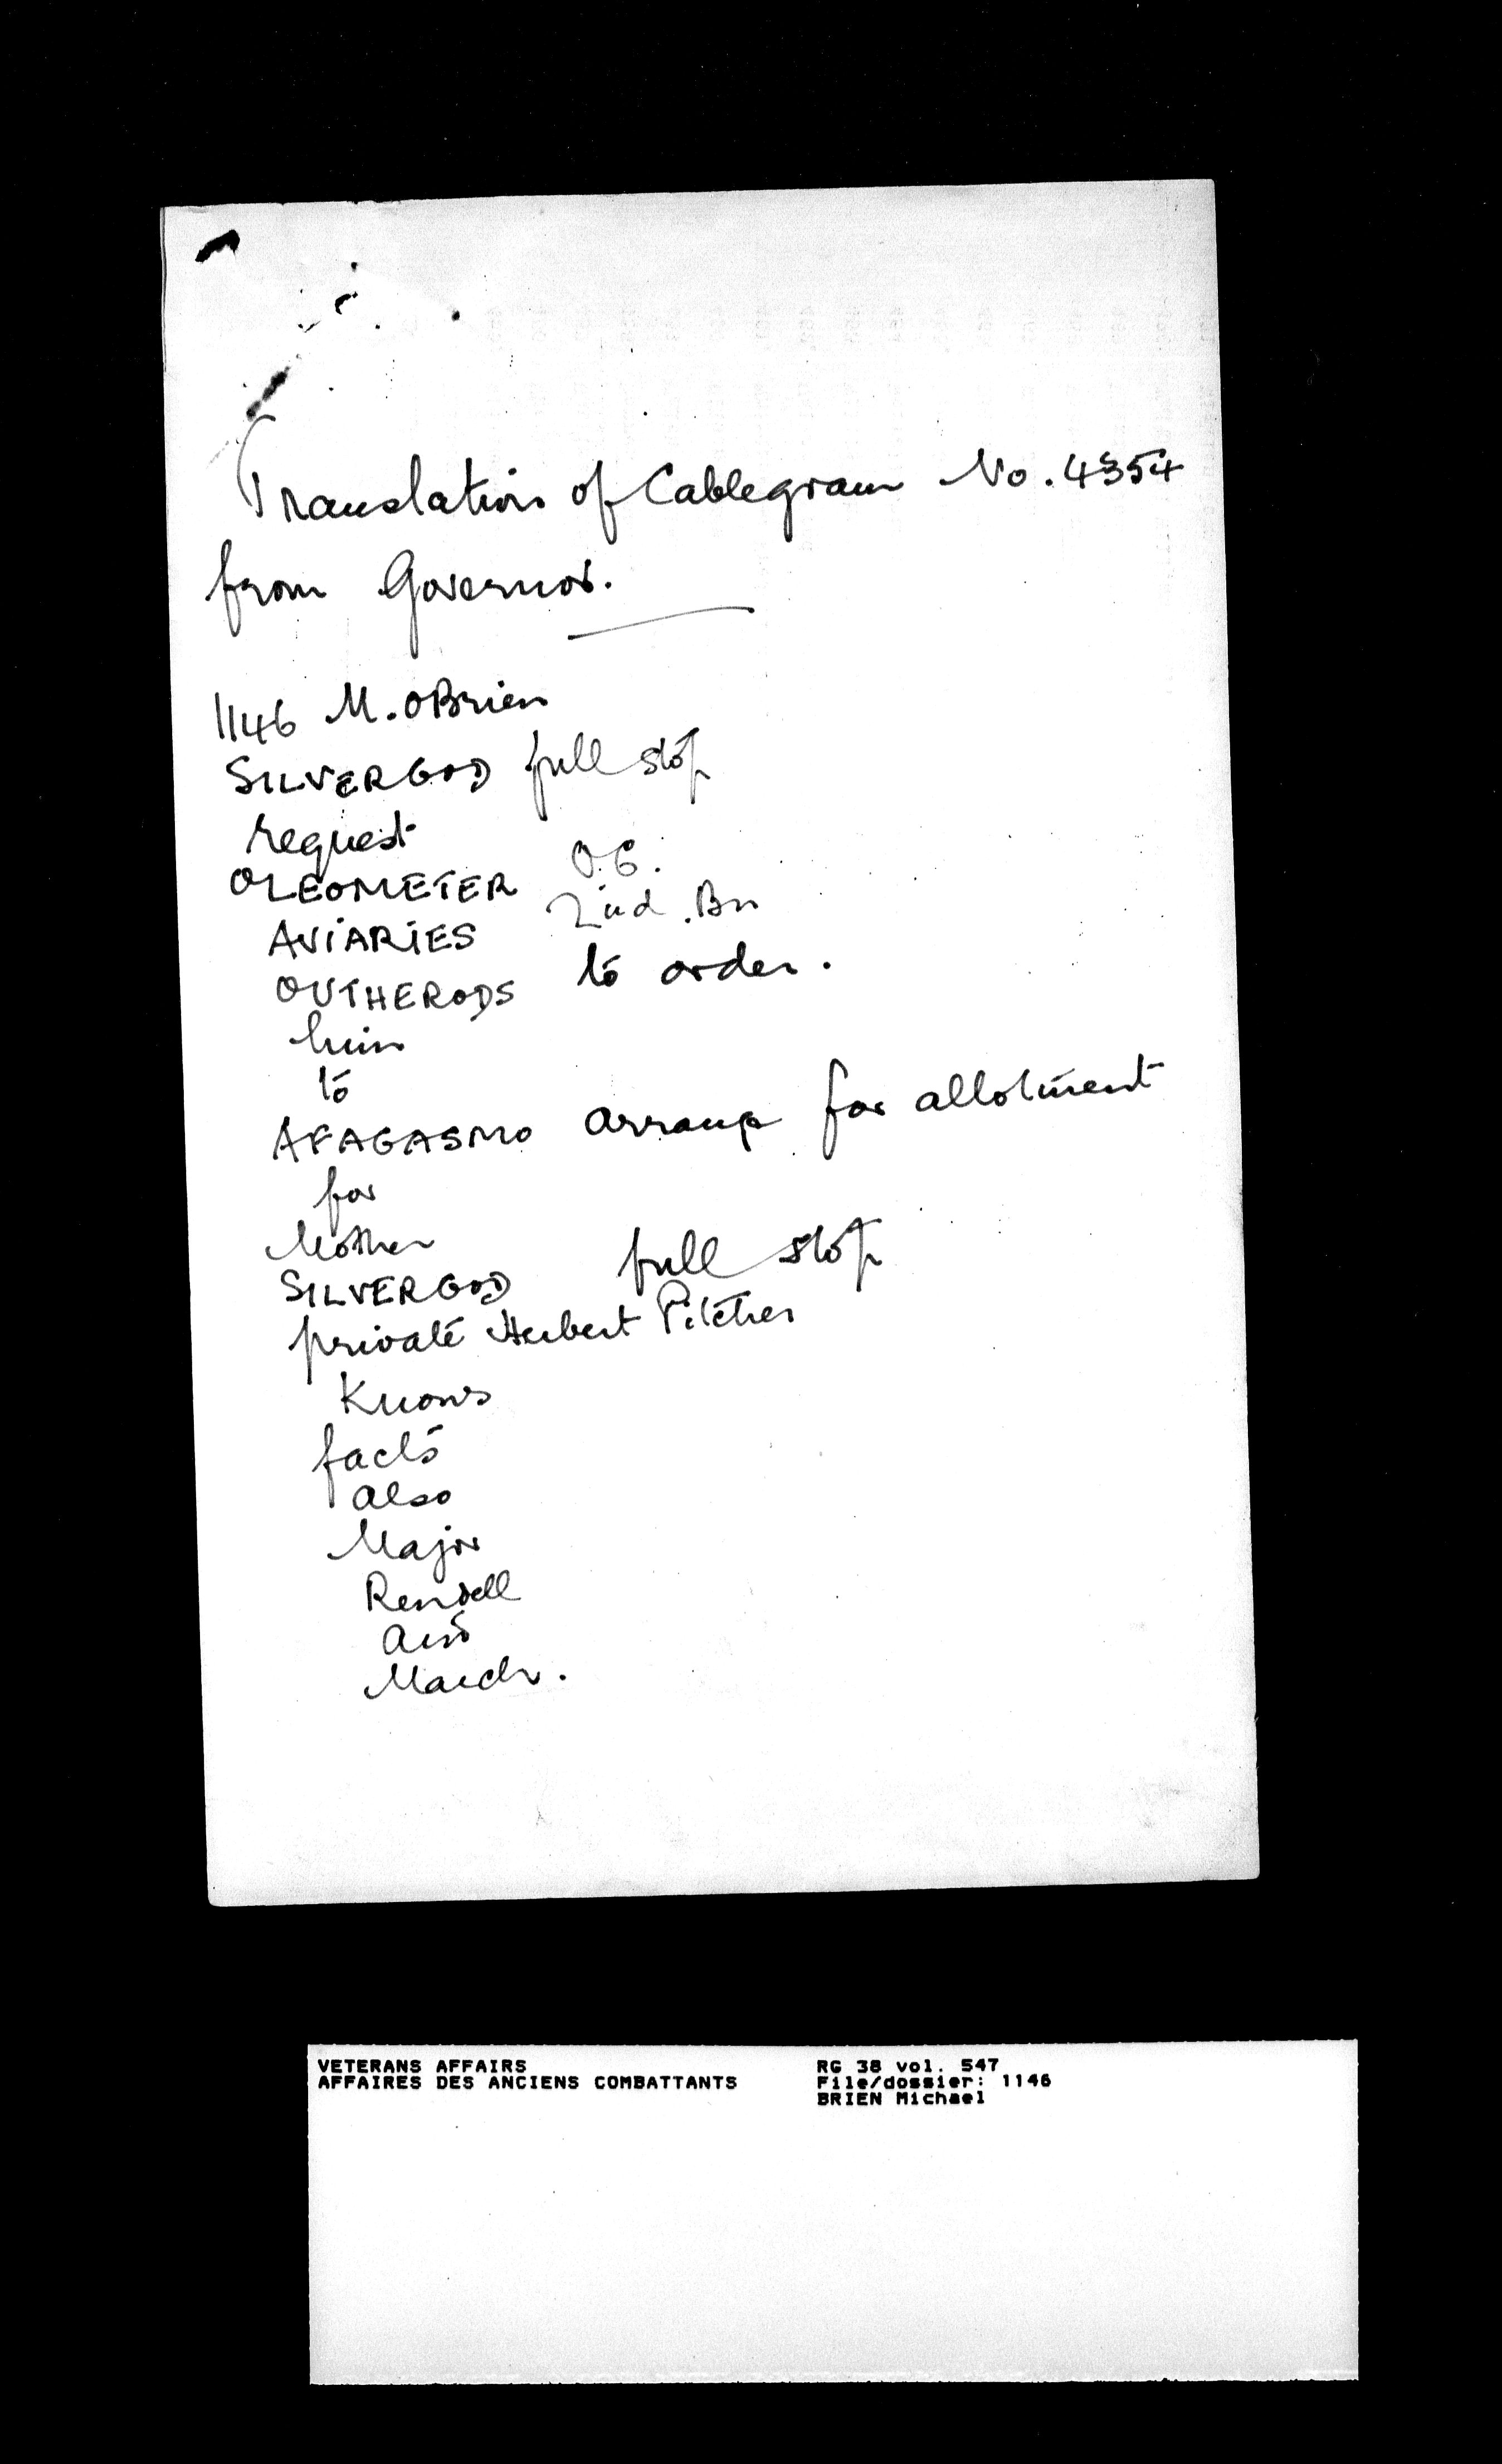 Translation of Cablegram No. 4354
from Governor.
1146 M. OBrien
SILVERGOD full stop
request
OLEOMETER O.C.
AVIARIES 2nd. Bn
OUTHERODS to order.
him
to
AFAGASMO arrange for allotment
for
Mother
SILVERGOD full stop
private Herbert Pitcher
Knows
facts
also
Major
Rendell
and
March.
VETERANS AFFAIRS RG 38 vol. 547
AFFAIRES DES ANCIENS COMBATTANTS File/dossier: 1146
BRIEN Michael